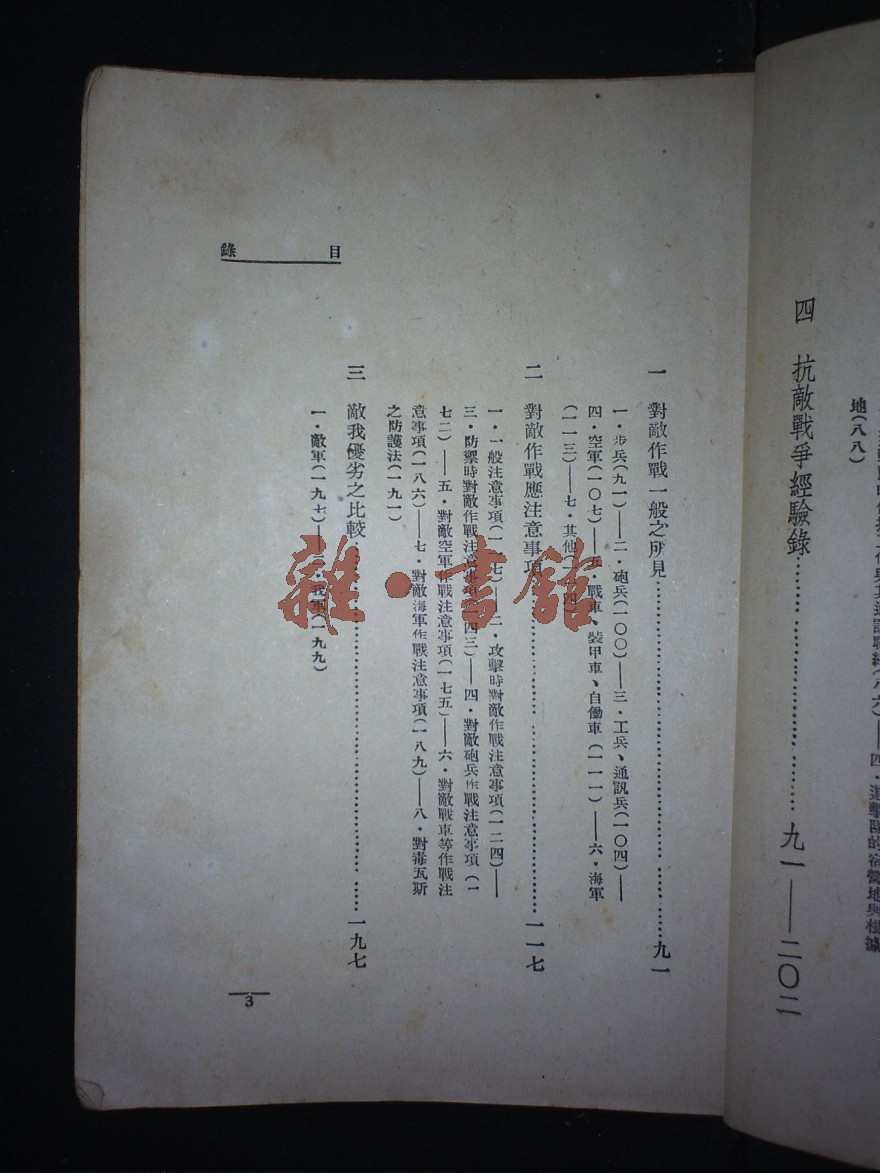 地(八八)
四 抗敵戰爭經驗錄……………………九一——二〇二
目錄
一 對敵作戰一般之所見……………………九一
一·步兵(九一)——二·砲兵(一〇〇)——三·工兵、通訊兵(一〇四)——
四·空軍(一〇七)——五·戰車、裝甲車、自働車(一一一)——六·海軍
(一一三)——七·其他(一一四)
二 對敵作戰應注意事項……………………一一七
一·一般注意事項(一一七)——二·攻擊時對敵作戰注意事項(一二四)——
三·防禦時對敵作戰注意事項(一四三)——四·對敵砲兵作戰注意事項(一
七二)——五·對敵空軍作戰注意事項(一七五)——六·對敵戰車等作戰注
意事項(一八六)——七·對敵海軍作戰注意事項(一八九)——八·對毒瓦斯
之防護法(一九一)
三 敵我優劣之比較……………………一九七
一·敵軍(一九七)——二·我軍(一九九)
3
雜·書館